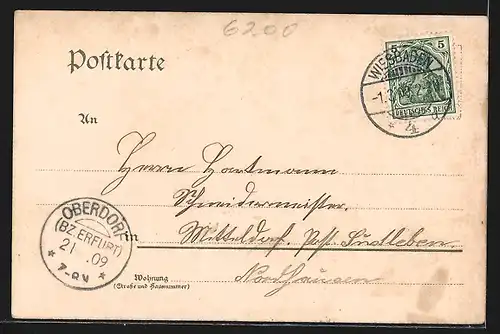 6200
Postkarte
5 5
DEUTSCHES REICH
WIESBADEN
4
An
Herrn Hartmann
Schneidermeister.
OBERDORF
(BZ. ERFURT)
21 . 09
7-8V
in Mitteldorf. Post. Sudleben
Nordhausen
Wohnung
(Straße und Hausnummer)